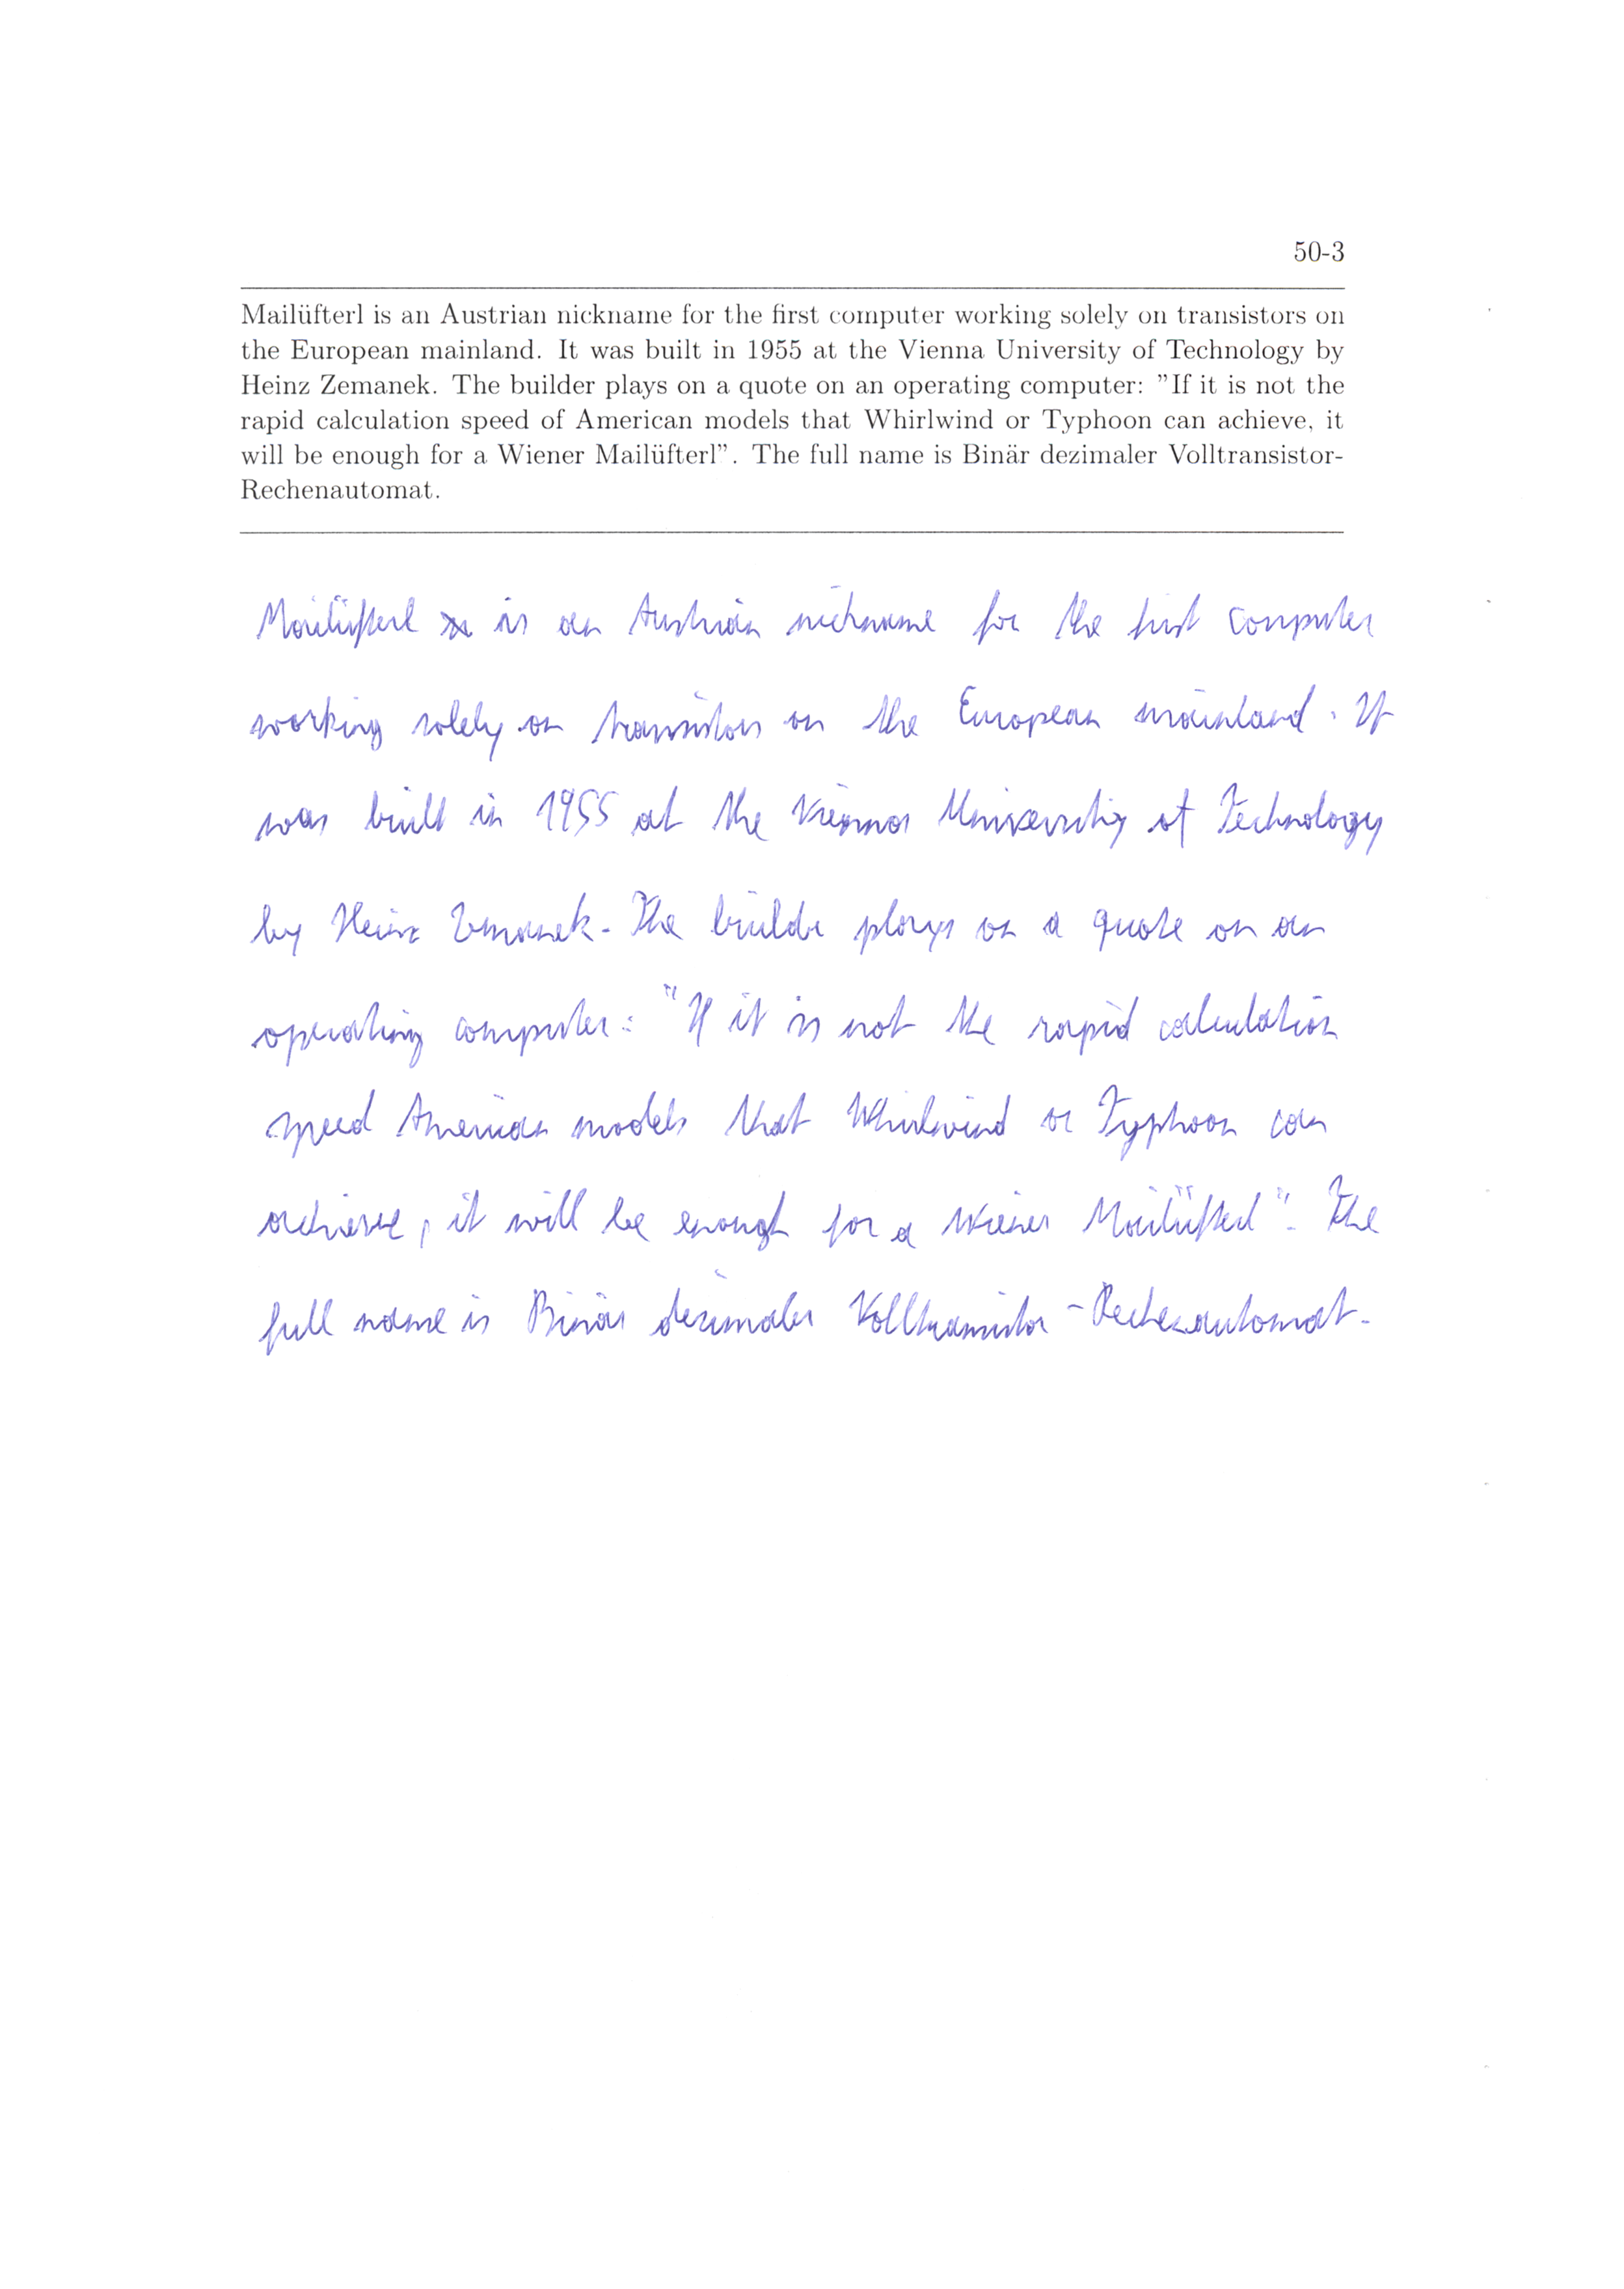 50-3
Mailüfterl is an Austrian nickname for the first computer working solely on transistors on
the European mainland. It was built in 1955 at the Vienna University of Technology by
Heinz Zemanek. The builder plays on a quote on an operating computer: "If it is not the
rapid calculation speed of American models that Whirlwind or Typhoon can achieve, it
will be enough for a Wiener Mailüfterl". The full name is Binär dezimaler Volltransistor-
Rechenautomat.
Mailüfterl is an Austrian nickname for the first computer
working solely on transistors on the European mainland. It
was built in 1955 at the Vienna University of Technology
by Heinz Zemanek. The builder plays on a quote on an
operating computer: "If it is not the rapid calculation
speed American models that Whirlwind or Typhoon can
achieve, it will be enough for a Wiener Mailüfterl". The
full name is Binär dezimaler Volltransistor-Rechenautomat.